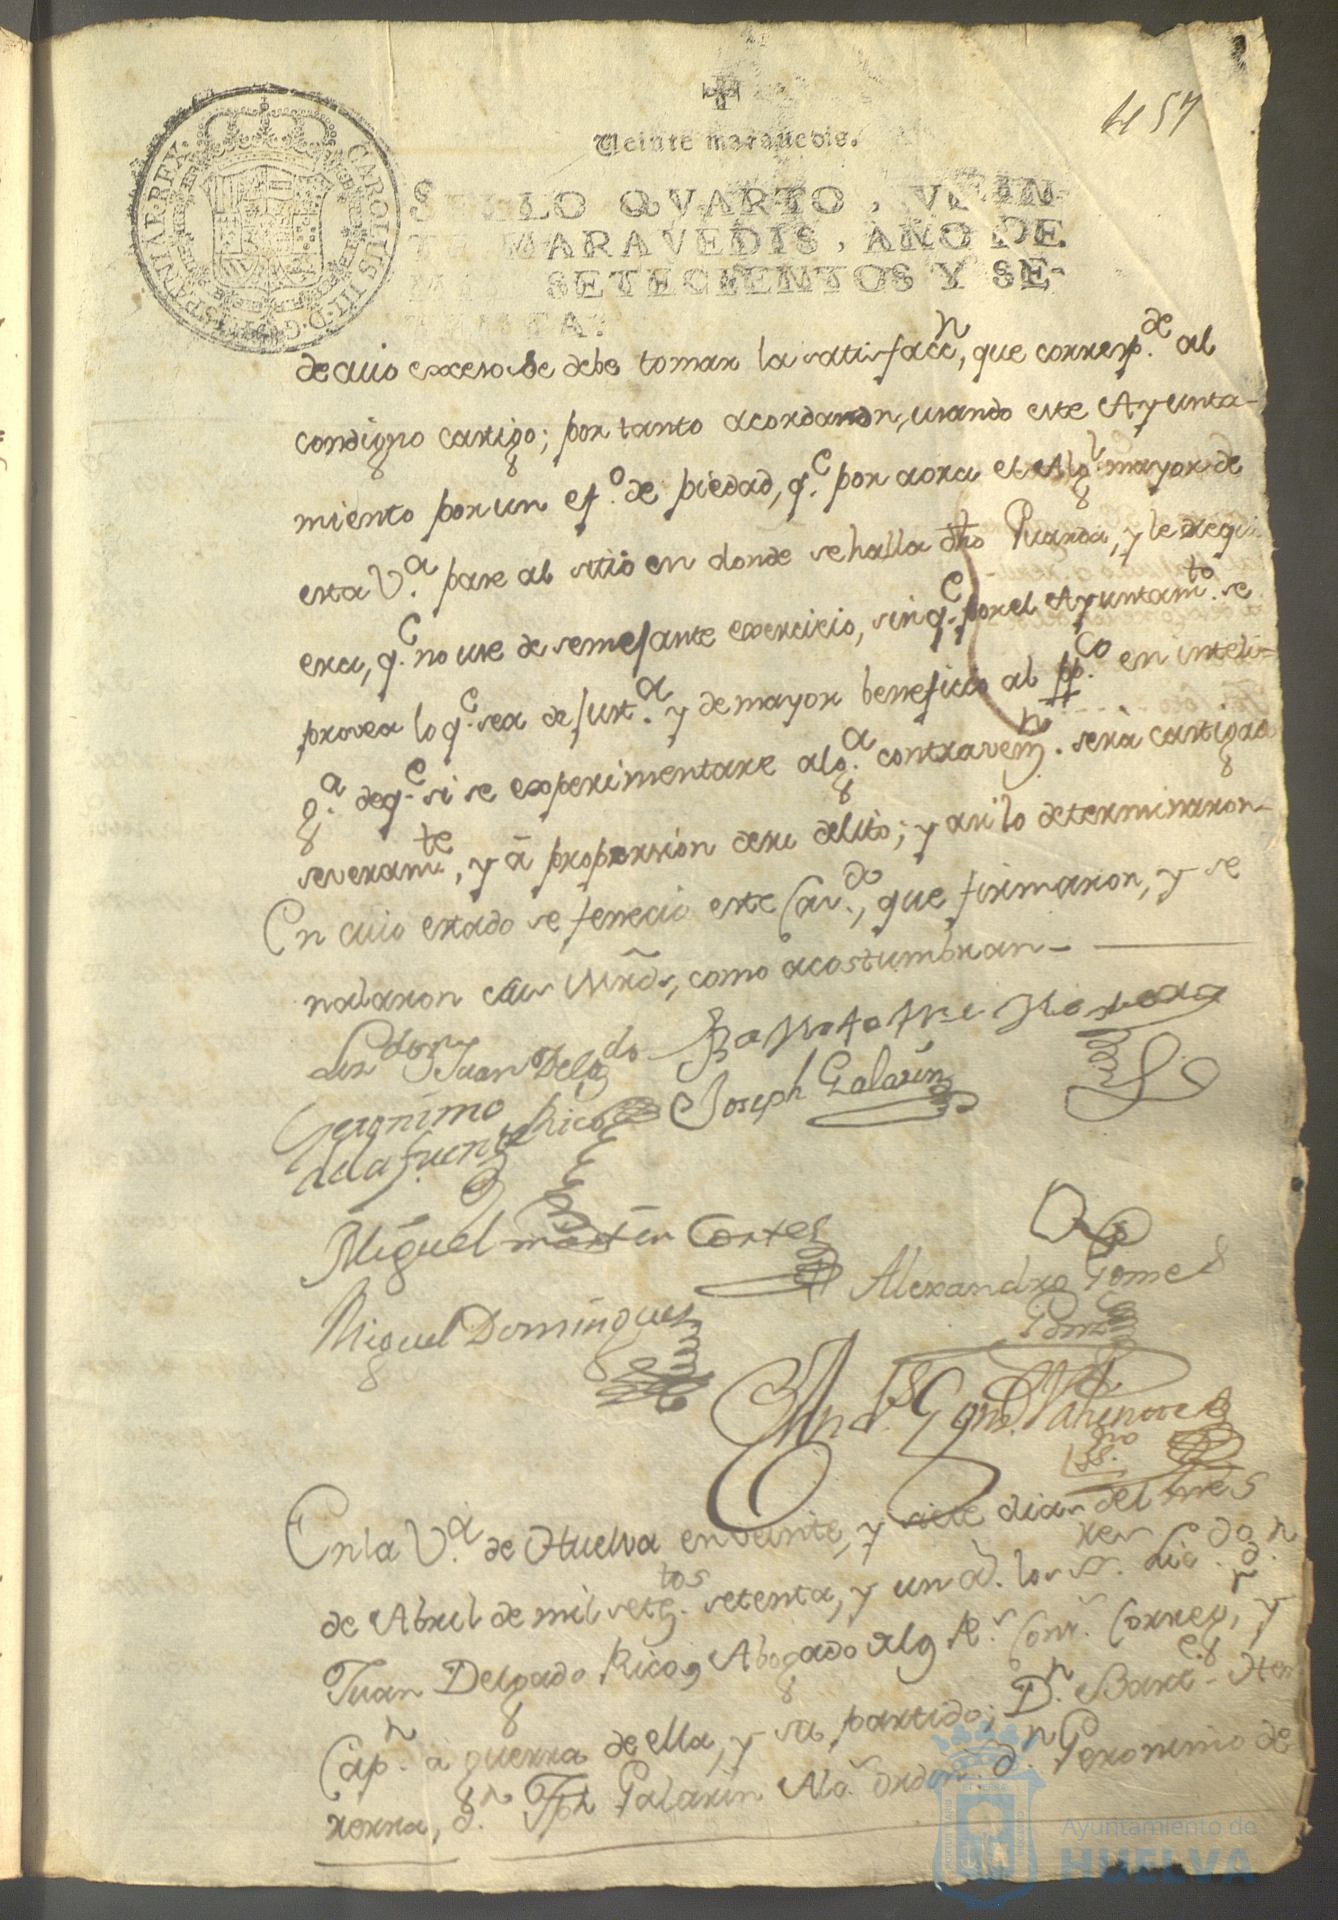 457
Veinte marauedis.
SELLO QVARTO, VEIN-
TE MARAVEDIS, AÑO DE
MIL SETECIENTOS Y SE-
TENTA.
CAROLUS III D G HISPANIAR REX
de cuio exceso se debe tomar la satisfaccn, que corresp.de al
condigno castigo; por tanto acordaron, usando este Ayunta-
miento por un ef.o de piedad, q.e por aora el Alg.l mayor de
esta V.a pase al sitio en donde se halla dho Guarda, y le requi
era, q.e no use de semejante exercicio, sin q.e por el Ayuntam.to se
provea lo q.e sea de just.a y de mayor beneficio al pp.co en inteli-
g.a de q.e si se experimentare alg.a contravenn. serà castigado
severam.te, y à proporsion de su delito; y asi lo determinaron-
En cuio estado se fenecio este Cav.do, que firmaron, y se
ñalaron sus Mrds, como acostumbran-
Lizdo Dn Juan Delgdo
Rico
Joseph Galarin
Geronimo
de la fuente
Miguel martin Cortes
Alexandro Gomes
Miguel Dominguez
En la V.a de Huelva en veinte, y siete dias del mes
de Abril de mil setez.tos setenta, y un a.s los ss.res Lic.do d.n
Juan Delgado Rico, Abogado de los R.s Cons.s Correg.r y
Cap.n a guerra de ella, y su partido; D.n Bart.e Her
rera, d.n Jph Galarin Alc.s ordin.s d.n Geronimo de
Ayuntamiento de
HUELVA